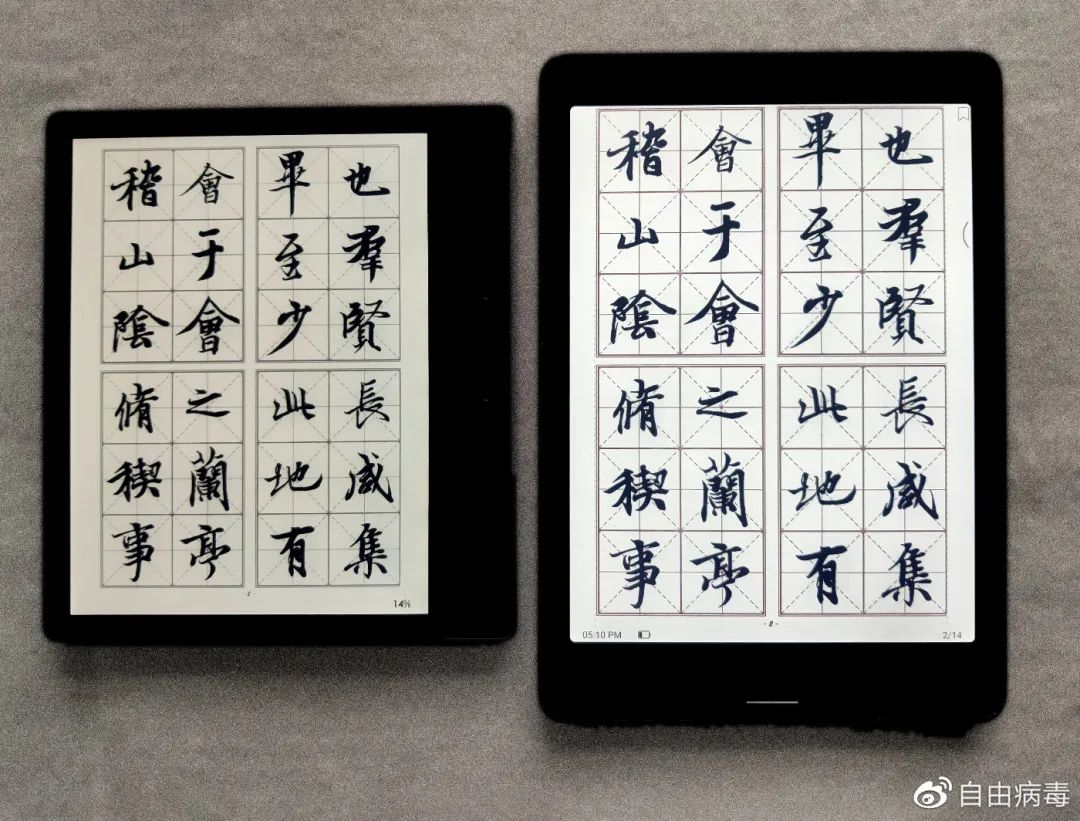 會于會
稽山陰
之蘭亭
脩稧事
也羣賢
畢至少
長咸集
此地有
2
14%
會于會
稽山陰
之蘭亭
脩稧事
也羣賢
畢至少
長咸集
此地有
- 2 -
05:10 PM
2/14
自由病毒